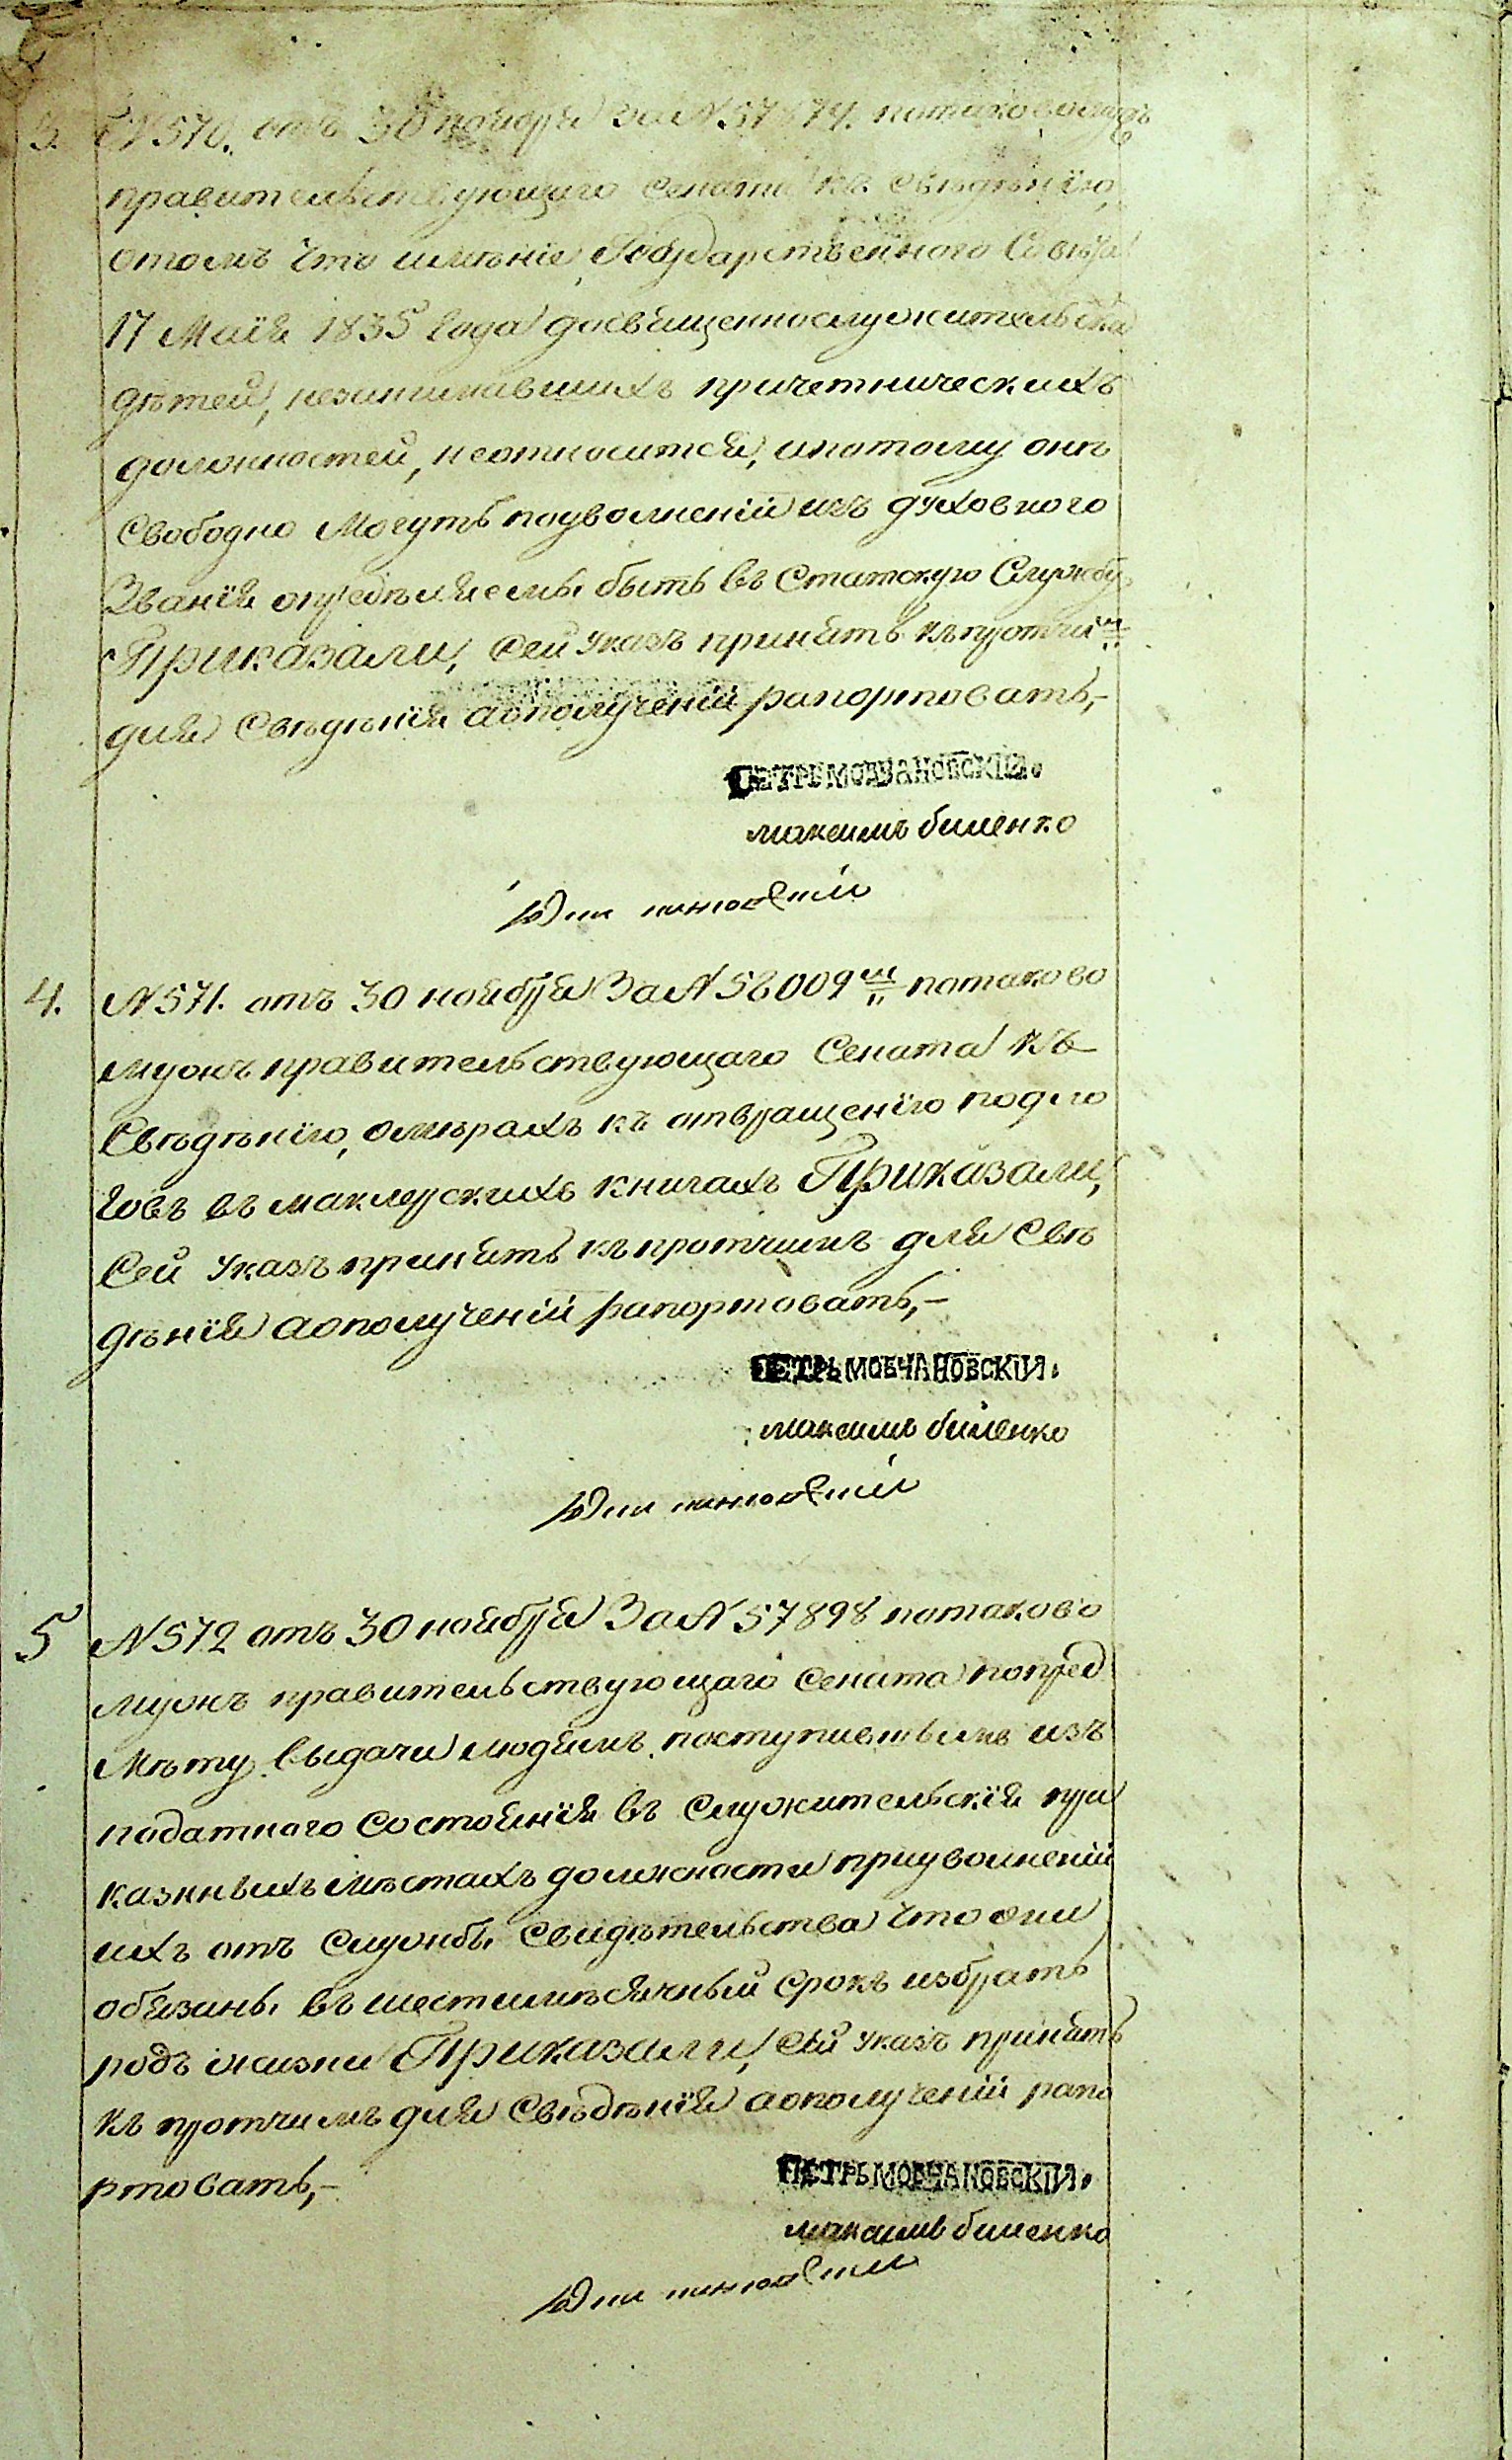 3. N 570. отъ 30 ноября За N 57874. потаковомужъ
правительствующаго Сената къ Свѣдѣнію,
отомъ что мнѣніе Государственного Совѣта
17 Маія 1835 года досвященнослужительска
дѣтей, незанимавшихъ причетническихъ
должностей, неотносится, ипотому онѣ
Свободно Могутъ поувольненіи изъ духовного
Званія опредѣляемы быть въ Статскую Службу
Приказали, Сей Указъ принять къпротчим
для Свѣдѣнія аополученіи рапортовать,-
ПЕТРЪ МОВЧАНОВСКІЙ.
максимъ биленко
4. N 571. отъ 30 ноября За N 58009 м потаково
муожъ правительствующаго Сената къ
Свѣдѣнію, омѣрахъ къ отвращенію подло
говъ въ маклерскихъ книгахъ Приказали,
Сей Указъ принять къпротчимъ для Свѣ
дѣнія аополученіи рапортовать,-
ПЕТРЪ МОВЧАНОВСКІЙ.
максимъ биленко
5 N 572 отъ 30 ноября За N 57898 потаково
муожъ правительствующаго Сената попред
Мѣту выдачи людямъ поступившымъ изъ
податного Состоянія въ Служительскія при
казныхъ мѣстахъ должности приувольненіи
ихъ отъ Службы Свидѣтельства что они
обязаны въ шестимѣсячный Срокъ избрать
родъ жизни Приказали, Сей Указъ принять
къ протчимъ для Свѣдѣнія аополученіи рапо
ртовать,-
ПЕТРЪ МОВЧАНОВСКІЙ.
максимъ биленко